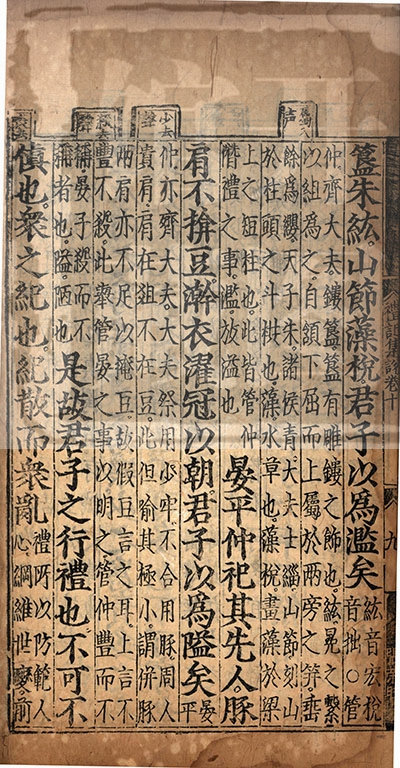 簋朱紘。山節藻梲君子以爲濫矣
紘音宏梲
音拙○管
仲齊大夫。鏤簋簋有雕鏤之飾也。紘冕之繫
以組爲之。自頷下屈而上屬於兩旁之笄。垂
餘爲纓。天子朱諸侯青。大夫士緇山節刻山
於柱頭之斗栱也。藻水草也。藻梲畫藻於梁
上之短柱也。此皆管仲
僭禮之事。濫放溢也
晏平仲祀其先人。豚
肩不揜豆。澣衣濯冠以朝。君子以爲隘矣
晏
平
仲亦齊大夫。大夫祭用少牢。不合用豚周人
貴肩肩在俎不在豆。此但喻其極小。謂併豚
兩肩亦不足以掩豆。故假豆言之耳。上言不
豐不殺。此舉管晏之事以明之管仲豐而不
稱晏子殺而不
稱者也。隘陋也
是故君子之行禮也不可不
慎也。衆之紀也。紀散而衆亂
禮所以防範人
心綱維世變前
禮記集說卷十
九
少去
聲